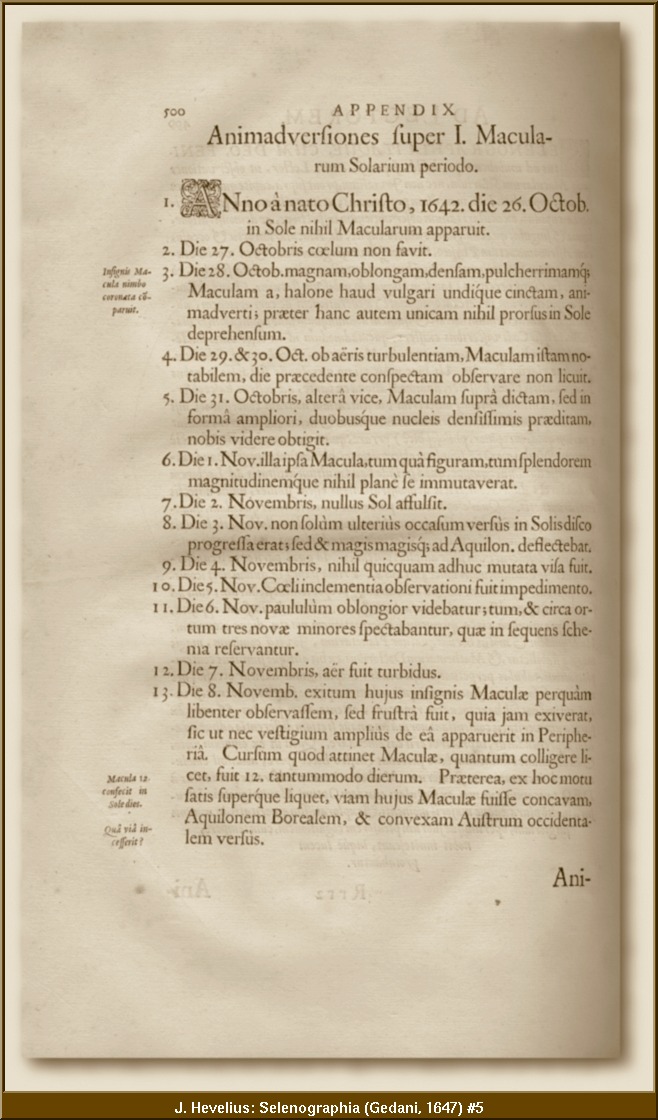 500 APPENDIX
Animadverſiones ſuper I. Macula-
rum Solarium periodo.
1. ANno à nato Chriſto, 1642. die 26. Octob.
in Sole nihil Macularum apparuit.
2. Die 27. Octobris cœlum non favit.
Inſignis Ma-
cula nimbo
coronata cō-
paruit.
3. Die 28. Octob. magnam, oblongam, denſam, pulcherrimamq;
Maculam a, halone haud vulgari undíque cinctam, ani-
madverti; præter hanc autem unicam nihil prorſus in Sole
deprehenſum.
4. Die 29. & 30. Oct. ob aëris turbulentiam, Maculam iſtam no-
tabilem, die præcedente conſpectam obſervare non licuit.
5. Die 31. Octobris, alterâ vice, Maculam ſuprà dictam, ſed in
formâ ampliori, duobuſque nucleis denſiſſimis præditam,
nobis videre obtigit.
6. Die 1. Nov. illa ipſa Macula, tum quà figuram, tum ſplendorem
magnitudinemque nihil planè ſe immutaverat.
7. Die 2. Novembris, nullus Sol affulſit.
8. Die 3. Nov. non ſolùm ulteriùs occaſum verſùs in Solis diſco
progreſſa erat; ſed & magis magiſq; ad Aquilon. deflectebat.
9. Die 4. Novembris, nihil quicquam adhuc mutata viſa fuit.
10. Die 5. Nov. Cœli inclementia obſervationi fuit impedimento.
11. Die 6. Nov. paululùm oblongior videbatur; tum, & circa or-
tum tres novæ minores ſpectabantur, quæ in ſequens ſche-
ma reſervantur.
12. Die 7. Novembris, aër fuit turbidus.
13. Die 8. Novemb. exitum hujus inſignis Maculæ perquàm
libenter obſervaſſem, ſed fruſtrà fuit, quia jam exiverat,
ſic ut nec veſtigium ampliùs de eâ apparuerit in Periphe-
riâ. Curſum quod attinet Maculæ, quantum colligere li-
cet, fuit 12. tantummodo dierum. Præterea, ex hoc motu
ſatis ſuperque liquet, viam hujus Maculæ fuiſſe concavam,
Aquilonem Borealem, & convexam Auſtrum occidenta-
lem verſùs.
Macula 12
confecit in
Sole dies.
Quâ viâ in-
ceſſerit?
Ani-
J. Hevelius: Selenographia (Gedani, 1647) #5